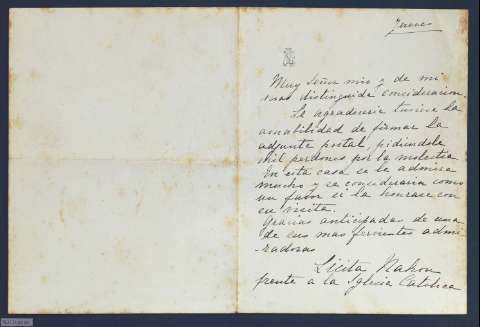 Jueves
Muy Señor mio y de mi
mas distinguida concideracion.
Le agradeceria tuviese la
amabilidad de firmar la
adjunta postal, pidiendole
mil perdones por la molestia
En esta casa se le admira
mucho y se concideraria como
un favor si la honrase con
su visita.
Gracias anticipadas de una
de sus mas fervientes admi-
-radoras
Licita Nahon
frente a la Iglesia Catolica